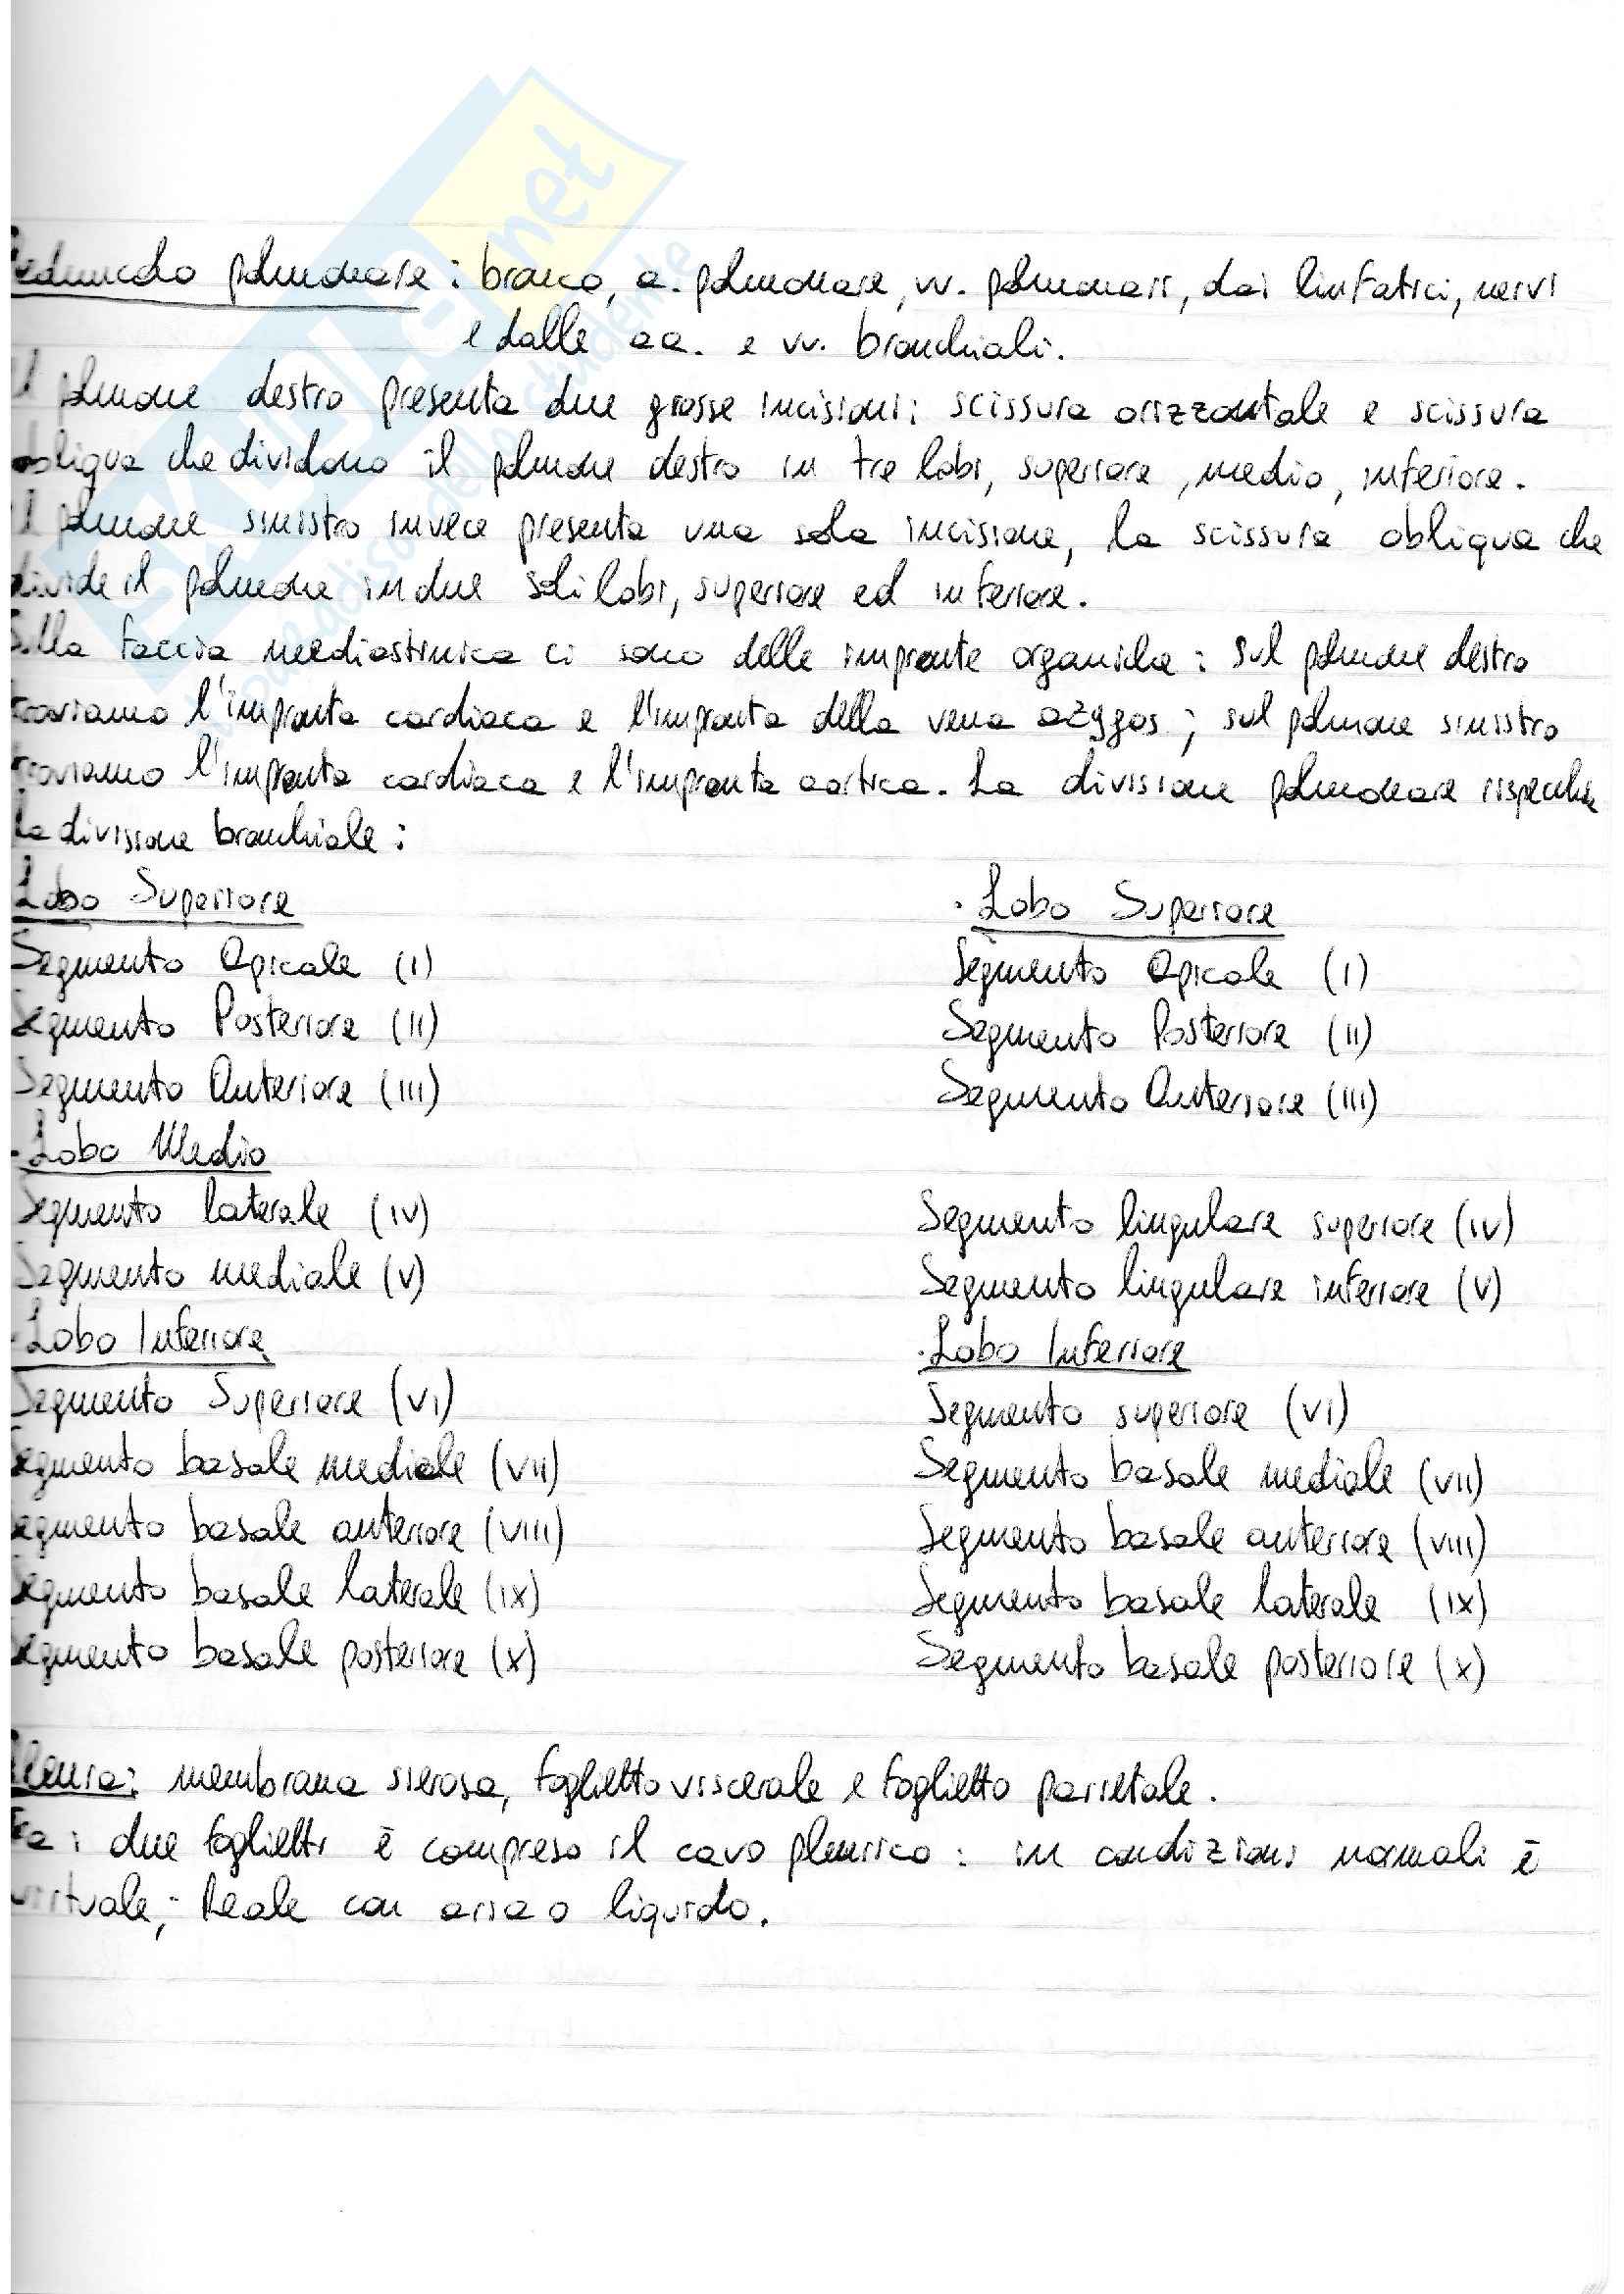 Peduncolo polmonare: bronco, a. polmonare, vv. polmonari, dai linfatici, nervi
e dalle aa. e vv. bronchiali.
Il polmone destro presenta due grosse incisioni: scissura orizzontale e scissura
obliqua che dividono il polmone destro in tre lobi, superiore, medio, inferiore.
Il polmone sinistro invece presenta una sola incisione, la scissura obliqua che
divide il polmone in due soli lobi, superiore ed inferiore.
Sulla faccia mediastinica ci sono delle impronte organiche: sul polmone destro
troviamo l'impronta cardiaca e l'impronta della vena azygos; sul polmone sinistro
troviamo l'impronta cardiaca e l'impronta aortica. La divisione polmonare rispecchia
la divisione bronchiale:
Lobo Superiore
Segmento Apicale (I)
Segmento Posteriore (II)
Segmento Anteriore (III)
·Lobo Medio
Segmento laterale (IV)
Segmento mediale (V)
·Lobo Inferiore
Segmento Superiore (VI)
Segmento basale mediale (VII)
Segmento basale anteriore (VIII)
Segmento basale laterale (IX)
Segmento basale posteriore (X)
·Lobo Superiore
Segmento Apicale (I)
Segmento Posteriore (II)
Segmento Anteriore (III)
Segmento lingulare superiore (IV)
Segmento lingulare inferiore (V)
·Lobo Inferiore
Segmento superiore (VI)
Segmento basale mediale (VII)
Segmento basale anteriore (VIII)
Segmento basale laterale (IX)
Segmento basale posteriore (X)
Pleura: membrana sierosa, foglietto viscerale e foglietto parietale.
Fra i due foglietti è compreso il cavo pleurico: in condizioni normali è
virtuale; Reale con aria o liquido.
.net